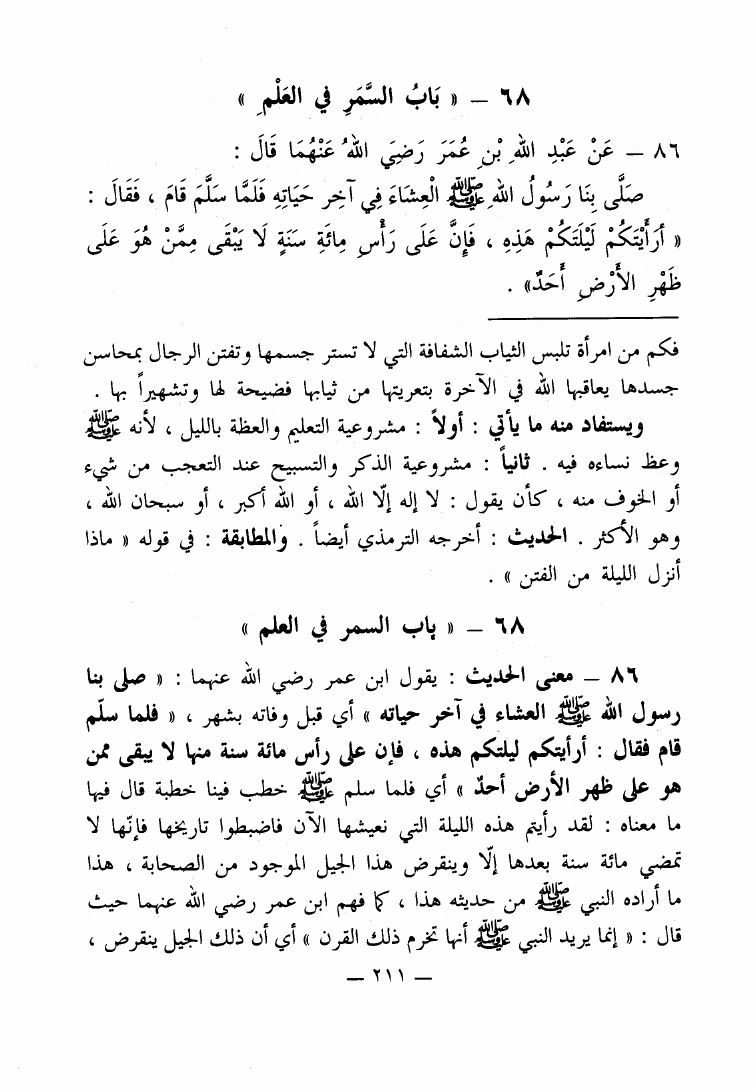 ٦٨ – « بَابُ السَّمَرِ فِي العَلْمِ »
٨٦ – عَنْ عَبْدِ اللهِ بْنِ عُمَرَ رَضِيَ اللهُ عَنْهُمَا قَالَ :
صَلَّى بِنَا رَسُولُ اللهِ ﷺ الْعِشَاءَ فِي آخِرِ حَيَاتِهِ فَلَمَّا سَلَّمَ قَامَ ، فَقَالَ :
« أَرَأَيْتَكُمْ لَيْلَتَكُمْ هَذِهِ ، فَإِنَّ عَلَى رَأْسِ مِائَةِ سَنَةٍ لَا يَبْقَى مِمَّنْ هُوَ عَلَى
ظَهْرِ الأَرْضِ أَحَدٌ» .
فكم من امرأة تلبس الثياب الشفافة التي لا تستر جسمها وتفتن الرجال بمحاسن
جسدها يعاقبها الله في الآخرة بتعريتها من ثيابها فضيحة لها وتشهيراً بها .
ويستفاد منه ما يأتي : أولاً : مشروعية التعليم والعظة بالليل ، لأنه ﷺ
وعظ نساءه فيه . ثانياً : مشروعية الذكر والتسبيح عند التعجب من شيء
أو الخوف منه ، كأن يقول : لا إله إلّا الله ، أو الله أكبر ، أو سبحان الله ،
وهو الأكثر . الحديث : أخرجه الترمذي أيضاً . والمطابقة : في قوله « ماذا
أنزل الليلة من الفتن » .
٦٨ – « باب السمر في العلم »
٨٦ – معنى الحديث : يقول ابن عمر رضي الله عنهما : « صلى بنا
رسول الله ﷺ العشاء في آخر حياته » أي قبل وفاته بشهر ، « فلما سلّم
قام فقال : أرأيتكم ليلتكم هذه ، فإن على رأس مائة سنة منها لا يبقى ممن
هو على ظهر الأرض أحدٌ » أي فلما سلم ﷺ خطب فينا خطبة قال فيها
ما معناه : لقد رأيتم هذه الليلة التي نعيشها الآن فاضبطوا تاريخها فإنّها لا
تمضي مائة سنة بعدها إلّا وينقرض هذا الجيل الموجود من الصحابة ، هذا
ما أراده النبي ﷺ من حديثه هذا ، كما فهم ابن عمر رضي الله عنهما حيث
قال : « إنما يريد النبي ﷺ أنها تخرم ذلك القرن » أي أن ذلك الجيل ينقرض ،
– ٢١١ –